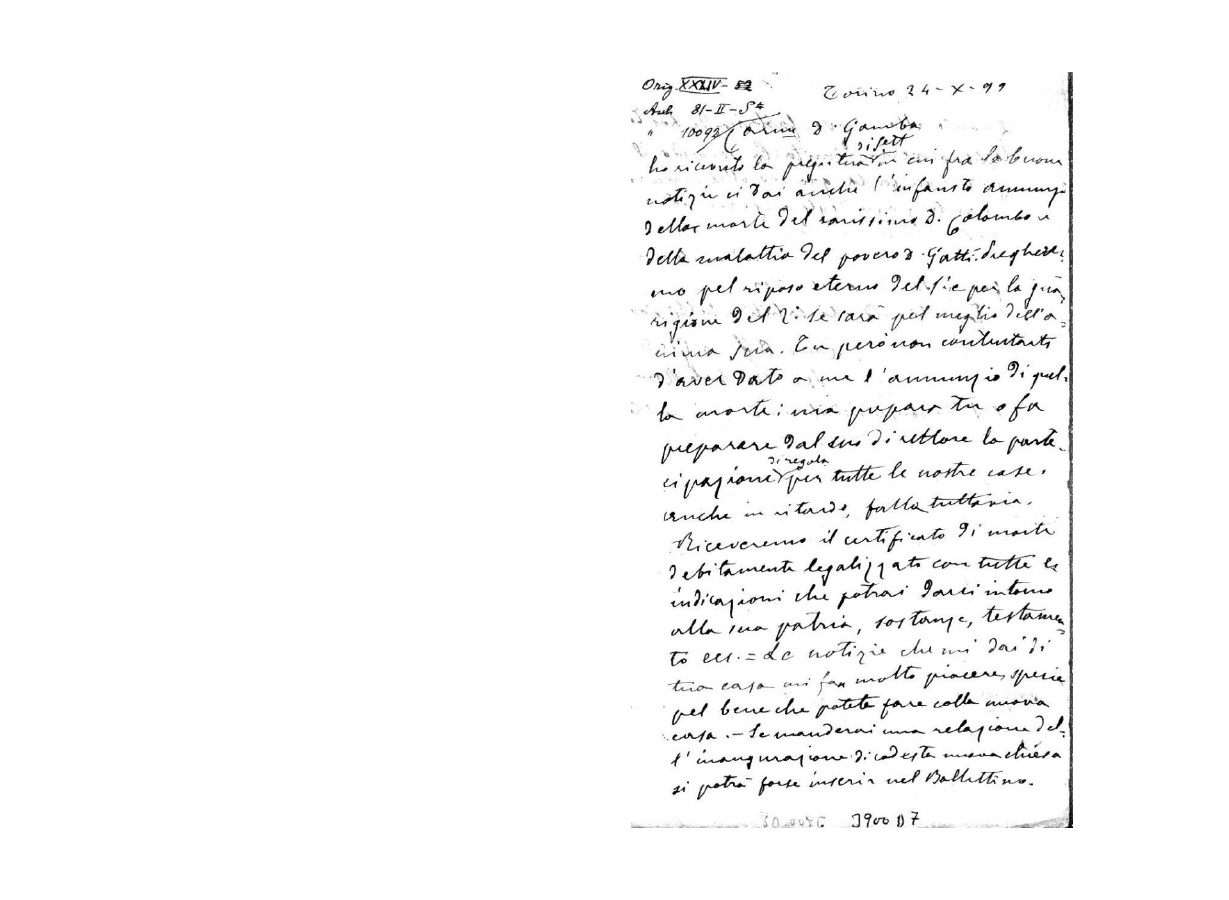 Orig. XXXIV - 52
Torino 24 - X - 99
Auth 81 - II - 54
" 10092
Carmo D. Gamba
di sett
ho ricevuto la pregta tua in cui fra le buone
notizie ci dai anche l'infausto annunzio
della morte del carissimo D. Colombo e
della malattia del povero D. Gatti. Preghere-
mo pel riposo eterno del 1º e per la gua-
rigione del 2º se sarà pel meglio dell'a-
nima sua. Tu però non contentarti
d'aver dato a me l'annunzio di quel-
la morte; ma prepara tu o fa
preparare dal suo direttore la parte-
di regola
cipazione per tutte le nostre case.
Anche in ritardo, falla tuttavia.
Riceveremo il certificato di morte
debitamente legalizzato con tutte le
indicazioni che potrai darci intorno
alla sua patria, sostanze, testamen-
to ecc. = Le notizie che mi dai di
tua casa mi fan molto piacere, specie
pel bene che potete fare colla nuova
casa. - Se manderai una relazione del-
l'inaugurazione di codesta nuova chiesa
si potrà forse inserir nel Bollettino.
3900 D 7